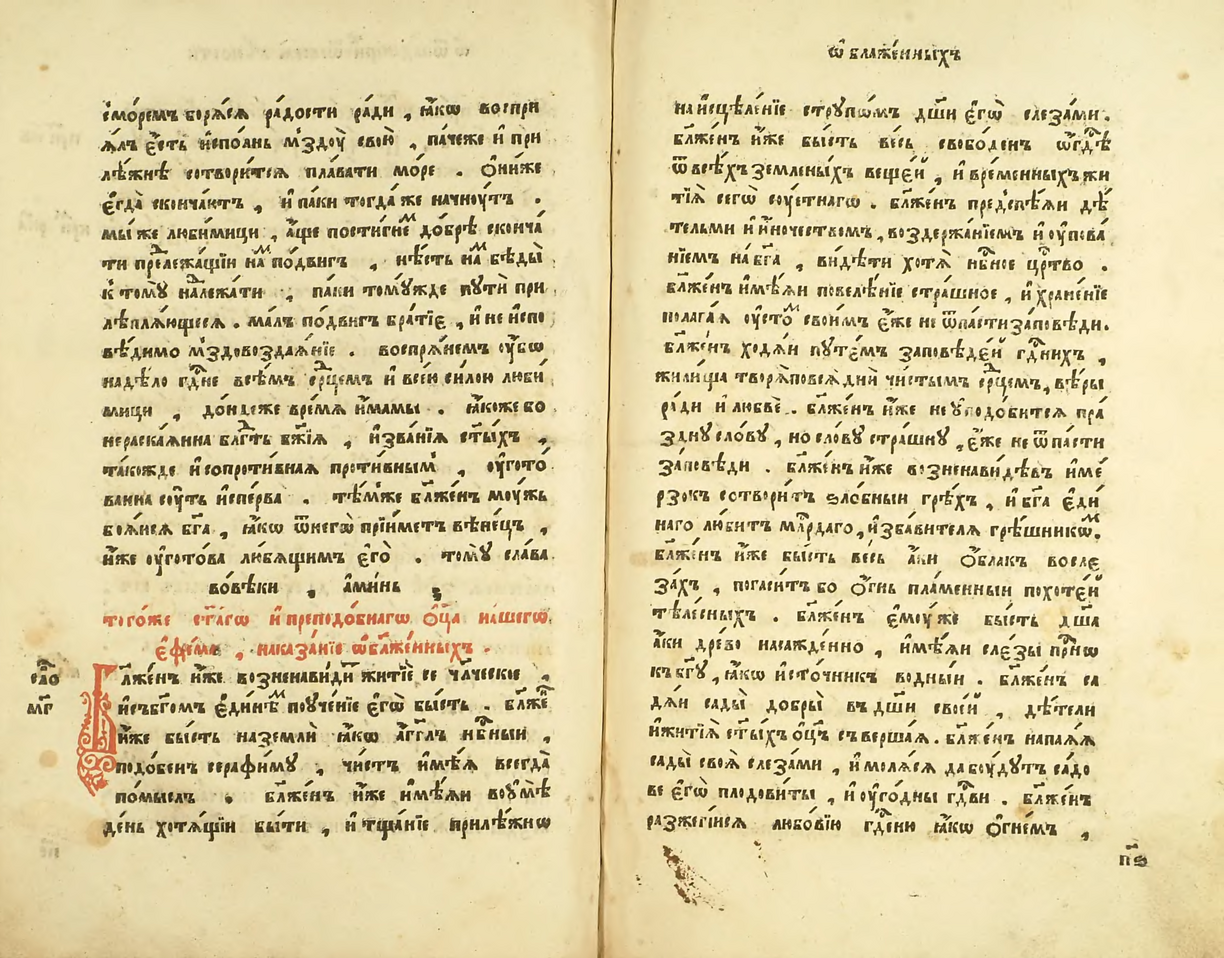 с̾мо́ремъ боря́йся ра́дости ра́ди , ꙗ҆́кѡ воспри
ѧ́лъ є҆́сть и҆спо́лнь мз̾доу̀ свою̀ , па́чеже и҆ при
лѣ́жнѣ сотвори́тсѧ пла́вати мо́ре . ѻ҆ни́же
є҆гда̀ сконча́ютъ , и҆ па́ки тогда́ же начноу́тъ .
мы́ же люби́мици , а҆́ще пости́гнеⷨ до́брѣ сконча
ти прⷣележа́щїи наⷨ по́двигъ , нѣ́сть наⷨ бѣды̀
к̾ томꙋ̀ належа́ти , па́ки томꙋ́жде пꙋтѝ при
лѣплѧ́ющесѧ . ма́лъ по́двигъ бра́тїє , и҆ не и҆спо
вѣ́димо мз̾довоздаѧ́нїе . воспрѧ́немъ ᲂу҆́бѡ
на дѣ́ло гдⷭ҇не всѣ́мъ срⷣцемъ и҆ все́ю си́лою люби
мици , до́ндеже вре́мѧ и҆́мамы . ꙗ҆́коже бо
нераска́ѧнна блгⷣть бж҃їѧ , и҆ зва́нїѧ ст҃ы́хъ ,
та́кожде и҆ сопроти́внаѧ проти́внымъ , ᲂу҆гото́
ванна сꙋ́ть и҆спе́рва . тѣ́мже бл҃же́нъ моу́жь
боѧ́йсѧ бг҃а , ꙗ҆́кѡ ѿ негѡ̀ прїи́метъ вѣне́цъ ,
и҆́же ᲂу҆гото́ва лю́бѧщимъ є҆го̀ . томꙋ̀ сла́ва
во вѣ́ки , а҆ми́нь ,
тогѡ́же ст҃а́гѡ и҆ преподо́бнагѡ ѻ҆ц҃а̀ на́шегѡ
є҆фре́ма , наказа́нїе ѡ҆ бл҃же́нныхъ .
сло́
мг҃
Бл҃же́нъ и҆́же возненави́дитъ житїѐ се чл҃ческое ,
и҆ съ бг҃омъ є҆ди́нѣⷨ поуче́нїе є҆гѡ̀ бы́сть . бл҃же́нъ
и҆́же бы́сть на землѝ ꙗ҆́кѡ а҆́гг҃лъ нбⷭ҇ный ,
подо́бенъ серафи́мꙋ , чи́стъ и҆мѣ́ѧ всегда̀
по́мыслъ . бл҃же́нъ и҆́же и҆мѣ́ѧи во ᲂу҆мѣ̀
де́нь хотѧ́щїи бы́ти , и҆ тща́нїе прилѣ́жнѡ
ѡ҆ блаже́нныхъ
на и҆сцѣле́нїе стрꙋ́пѡмъ дш҃и є҆гѡ̀ слеза́ми .
бл҃же́нъ и҆́же бы́сть ве́сь свобо́денъ ѡ҆ гдⷭ҇ѣ
ѿ всѣ́хъ земле́ныхъ веще́й , и҆ вре́менныхъ жи
тїѧ̀ сегѡ̀ соу́етнагѡ . бл҃же́нъ предспѣ́ѧи дѣ́
тельми и҆ и҆́ночествомъ , воздержа́нїемъ и҆ ᲂу҆пова́
нїемъ на бг҃а , ви́дѣти хотѧ̀ нбⷭ҇ное црⷭ҇тво .
бл҃же́нъ и҆мѣ́ѧи повелѣ́нїе стра́шное , и҆ хране́нїе
полага́ѧ ᲂу҆сто́ⷨ свои́мъ є҆́же не ѿпа́сти за́повѣди .
бл҃же́нъ ходѧ́и пꙋте́мъ за́повѣдей гдⷭ҇нихъ ,
жили́ща творѧ̀ по всѧ̀ днѝ чи́стымъ срⷣцемъ , вѣ́ры
ра́ди и҆ любвѐ . бл҃же́нъ и҆́же не ᲂу҆подо́битсѧ пра́
зднꙋ сло́вꙋ , но сло́вꙋ стра́шнꙋ , є҆́же не ѿпа́сти
за́повѣди . бл҃же́нъ и҆́же возненави́дѣвъ и҆ ме́
рзокъ сотвори́тъ ѕло́бный грѣ́хъ , и҆ бг҃а є҆ди́
наго лю́битъ млⷭ҇рдаго , и҆зба́вителѧ грѣ́шникѡⷨ .
бл҃же́нъ и҆́же бы́сть ве́сь а҆́ки ѻ҆́блакъ во сле
за́хъ , погаси́тъ бо ѻ҆́гнь пла́менный похоте́й
тѣле́сныхъ . бл҃же́нъ є҆моу́же бы́сть дш҃а
а҆́ки дре́во насажде́нно , и҆мѣ́ѧи сле́зы прⷭ҇нѡ
къ бг҃ꙋ , ꙗ҆́кѡ и҆сто́чникъ во́дный . бл҃же́нъ са
дѧ́и сады̀ до́бры въ дш҃и свое́й , дѣ́тели
и҆ житїѧ̀ ст҃ы́хъ ѻ҆ц҃ъ съверша́ѧ . бл҃же́нъ напаѧ́ѧ
сады̀ своѧ̀ слеза́ми , и҆ молѧ́сѧ да боу́дꙋтъ садо
ве є҆гѡ̀ плодови́ты , и҆ ᲂу҆го́дны гдⷭ҇ви . бл҃же́нъ
разже́гїйсѧ любо́вїю гдⷭ҇нею ꙗ҆́кѡ ѻ҆гне́мъ ,
пѕ҃